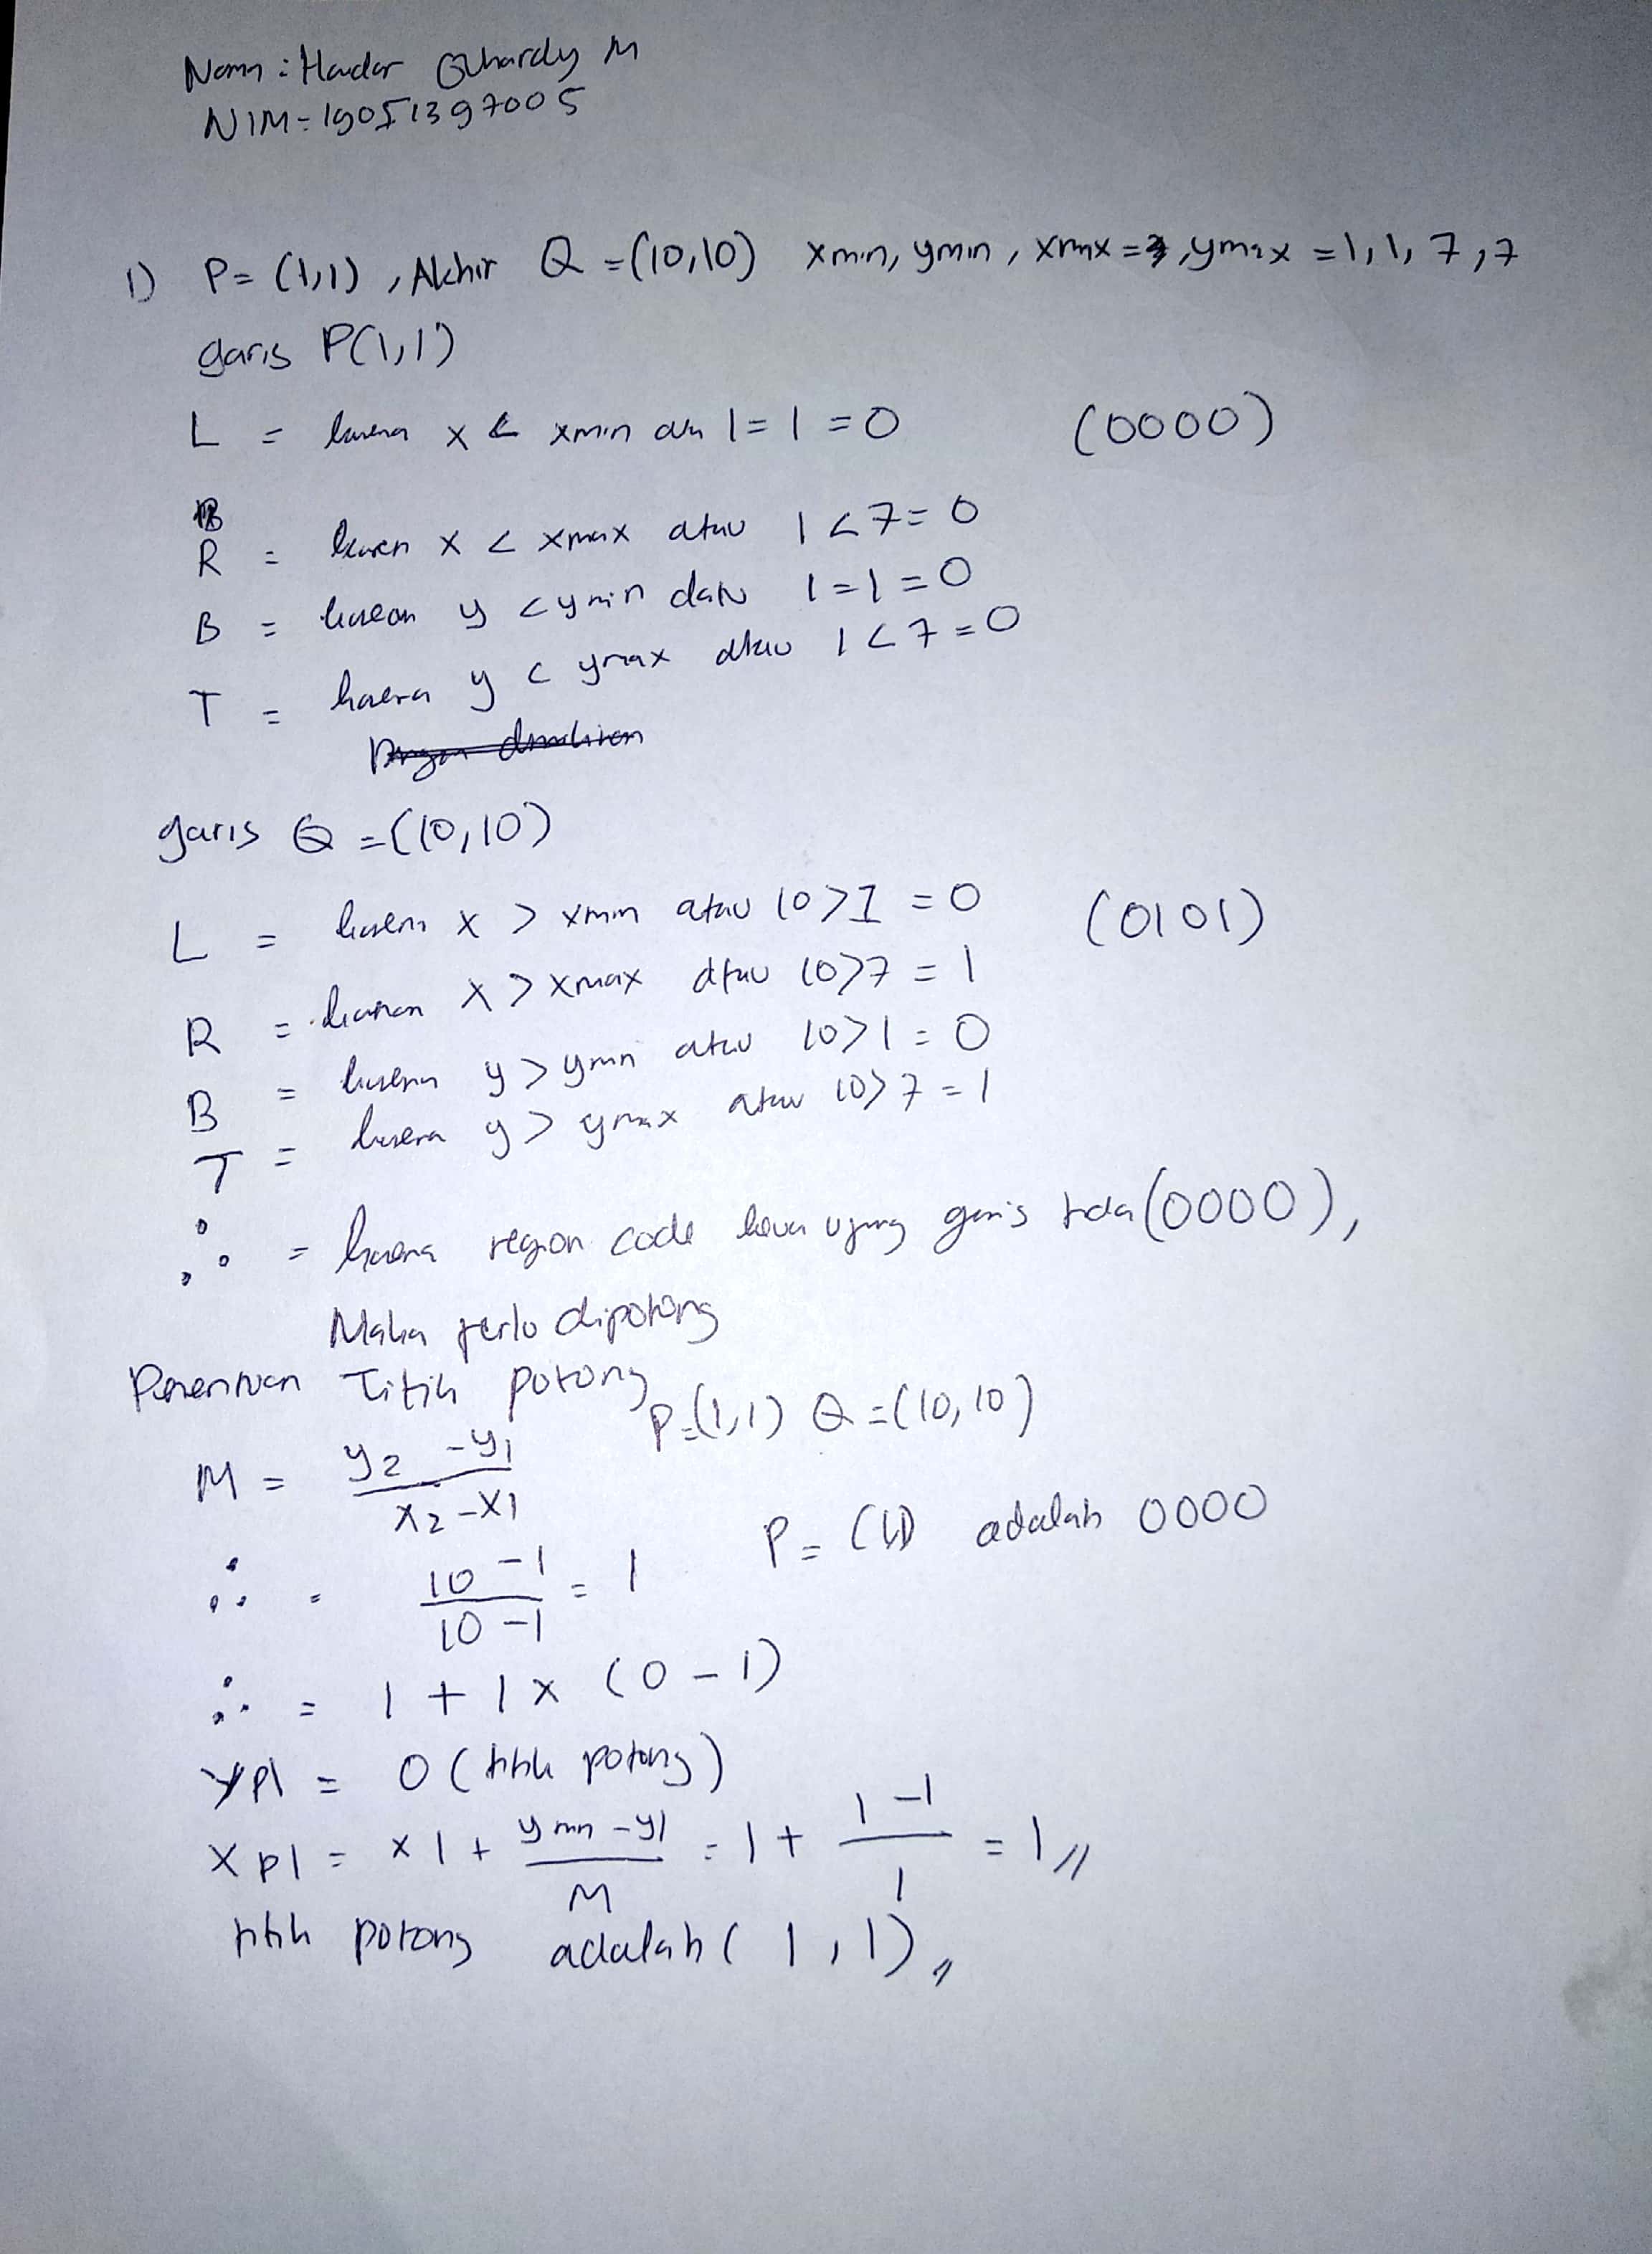 Nama : Haidar Ghardy M
NIM = 19051397005
1) P = (1,1) , Akhir Q = (10,10) xmin, ymin, xmax = , ymax = 1, 1, 7, 7
garis P(1,1)
L = karena x xmin 1 = 1 = 0 (0000)
R = karen x < xmax atau 1 < 7 = 0
B = y < ymin 1 = 1 = 0
T = y < ymax atau 1 < 7 = 0
garis Q = (10,10)
L = karena x > xmin atau 10 > 1 = 0 (0101)
R = x > xmax atau 10 > 7 = 1
B = karena y > ymin atau 10 > 1 = 0
T = karena y > ymax atau 10 > 7 = 1
∴ = karena region code ujung garis (0000),
Maka perlu dipotong
Penentuan Titik potong P = (1,1) Q = (10,10)
M = y2 - y1 / x2 - x1
∴ = 10 - 1 / 10 - 1 = 1 P = (1,1) adalah 0000
∴ = 1 + 1 x (0 - 1)
yp1 = 0 (titik potong)
xp1 = x1 + ymin - y1 / M = 1 + 1 - 1 / 1 = 1 //
titik potong adalah (1, 1) //